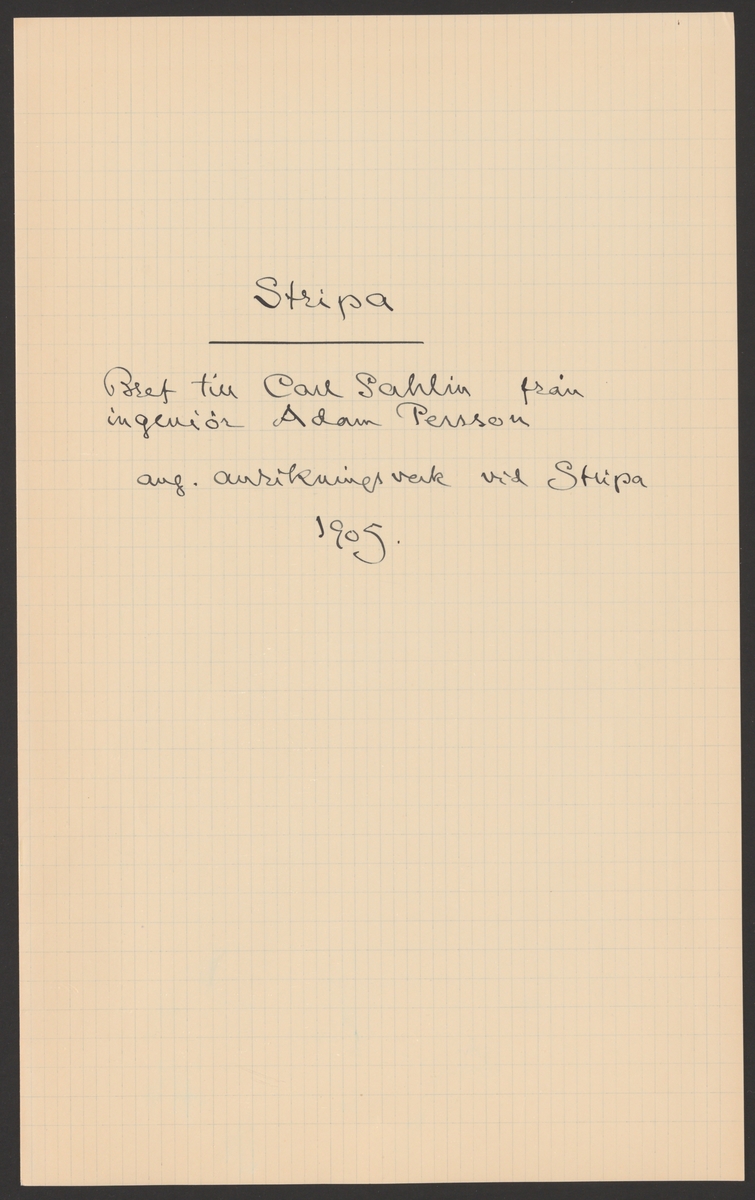 Stripa
Bref till Carl Sahlin från
ingeniör Adam Persson
ang. anrikningsverk vid Stripa
1905.